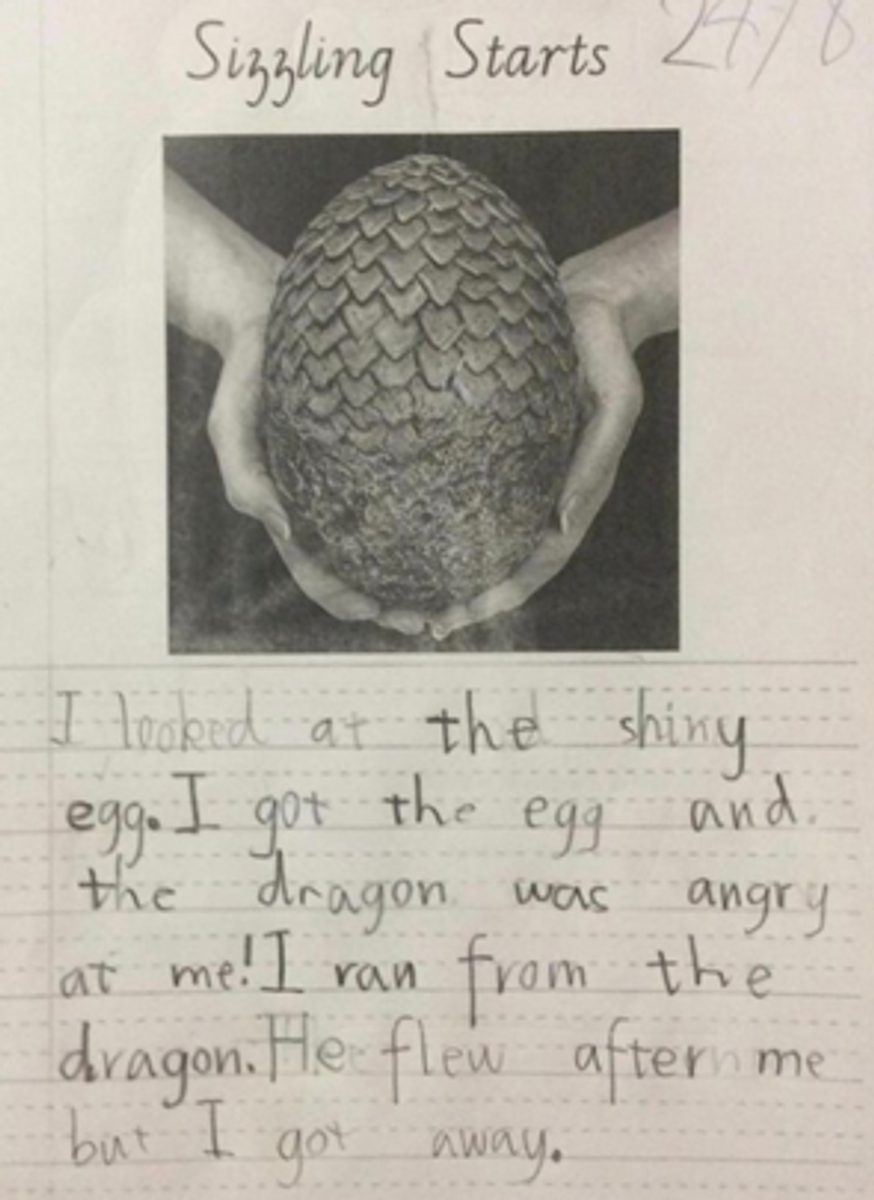 Sizzling Starts 24/8
I looked at the shiny
egg. I got the egg and
the dragon was angry
at me! I ran from the
dragon. He flew after me
but I got away.